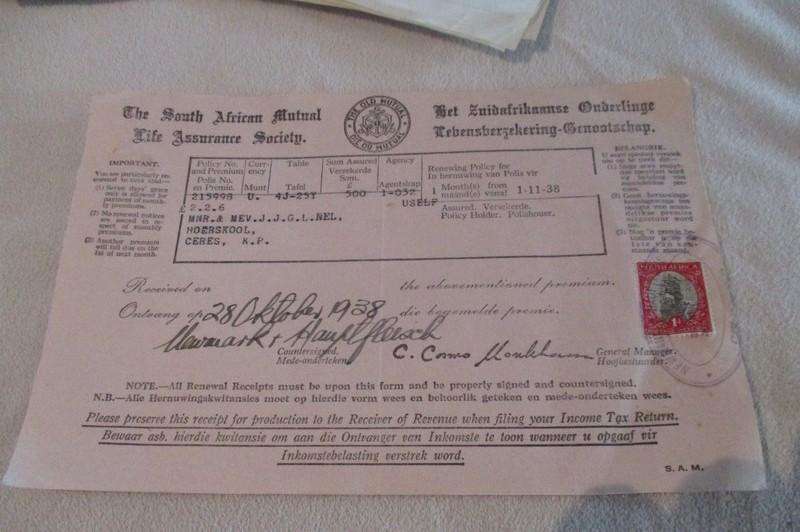 The South African Mutual
Life Assurance Society.
THE OLD MUTUAL
DIE OU MUTUAL
Het Zuidafrikaanse Onderlinge
Lebensverzekering-Genootschap.
IMPORTANT.
You are particularly re-
quested to note that—
(1) Seven days' grace
only is allowed for
payment of month-
ly premiums.
(2) No renewal notices
are issued in re-
spect of monthly
premiums.
(3) Another premium
will fall due on the
1st of next month.
Policy No. and Premium
Polis No. en Premie.
Curr-ency
Munt
Table
Tafel
Sum Assured
Versekerde Som.
£
Agency
Agentskap
Renewing Policy for
In herniewing van Polis vir
215998 U. 4J-25Y 500 1-032 1 Month(s) from maand(e) vanaf 1-11-38
£ 2.2.6 USELF
Assured. Versekerde.
Policy Holder. Polishouer.
MNR.& MEV.J.J.G.L.NEL,
HOERSKOOL,
CERES, K.P.
BELANGRIK.
SOUTH AFRICA
1D
Received on the abovementioned premium.
Ontvang op 28 Oktober 1938 die bogemelde premie.
Newmark & Hauptfleisch
Countersigned. General Manager.
Mede-onderteken. Hoofbestuurder.
NOTE.—All Renewal Receipts must be upon this form and be properly signed and countersigned.
N.B.—Alle Hernuwingskwitansies moet op hierdie vorm wees en behoorlik geteken en mede-onderteken wees.
Please preserve this receipt for production to the Receiver of Revenue when filing your Income Tax Return.
Bewaar asb. hierdie kwitansie om aan die Ontvanger van Inkomste te toon wanneer u opgaaf vir
Inkomstebelasting verstrek word.
S.A.M.